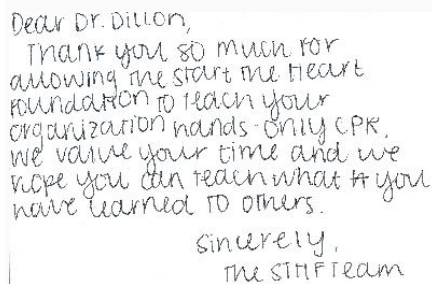 Dear Dr. Dillon,
Thank you so much for
allowing the Start the Heart
Foundation to teach your
organization hands-only CPR.
We value your time and we
hope you can teach what you
have learned to others.
Sincerely,
The STHF Team